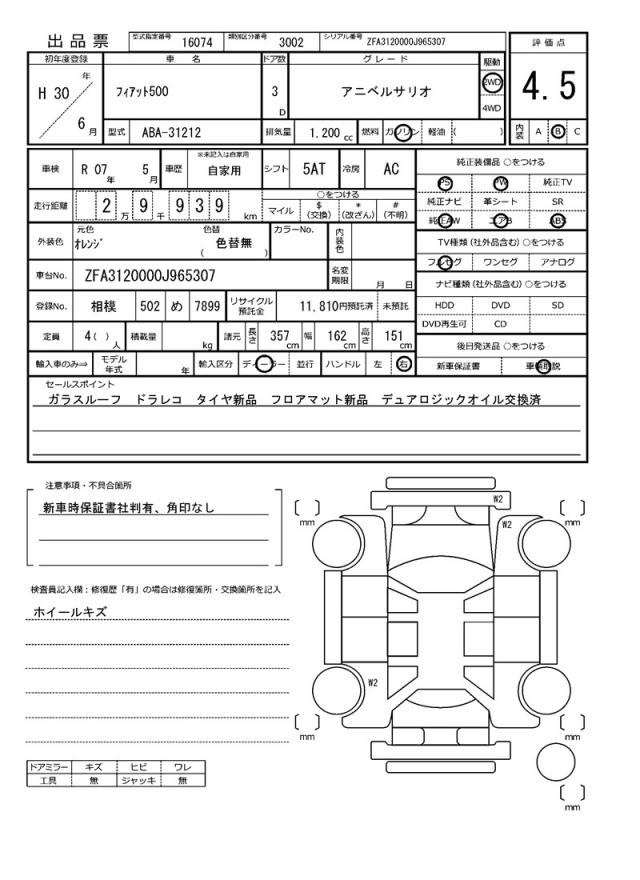 出品票 型式指定番号 16074 類別区分番号 3002 シリアル番号 ZFA3120000J965307
評価点
4.5
初年度登録 車名 ドア数 グレード 駆動
H 30 年 6 月 フィアット500 3 D アニベルサリオ 2WD
4WD
型式 ABA-31212 排気量 1.200 cc 燃料 ガソリン 軽油 ( ) 内装 A B C
車検 R 07 年 5 月 車歴 ※未記入は自家用 自家用 シフト 5AT 冷房 AC
走行距離 2 万 9 千 9 3 9 km ○をつける
マイル $ (交換) * (改ざん) # (不明)
外装色 元色 オレンジ 色替 色替無 ( ) カラーNo. 内装色
車台No. ZFA3120000J965307 名変期限 月 日
登録No. 相模 502 め 7899 リサイクル預託金 11,810円預託済 未預託
定員 4( ) 人 積載量 kg 諸元 長さ 357 cm 幅 162 cm 高さ 151 cm
輸入車のみ⇒ モデル年式 年 輸入区分 ディーラー 並行 ハンドル 左 右
純正装備品 ○をつける
PS PW 純正TV
純正ナビ 革シート SR
純正AW エアB ABS
TV種類 (社外品含む) ○をつける
フルセグ ワンセグ アナログ
ナビ種類 (社外品含む) ○をつける
HDD DVD SD
DVD再生可 CD
後日発送品 ○をつける
新車保証書 車輌取説
セールスポイント
ガラスルーフ ドラレコ タイヤ新品 フロアマット新品 デュアロジックオイル交換済
注意事項・不具合箇所
新車時保証書社判有、角印なし
検査員記入欄:修復歴「有」の場合は修復箇所・交換箇所を記入
ホイールキズ
ドアミラー キズ ヒビ ワレ
工具 無 ジャッキ 無
W2
W2
W2
mm
mm
mm
mm
mm